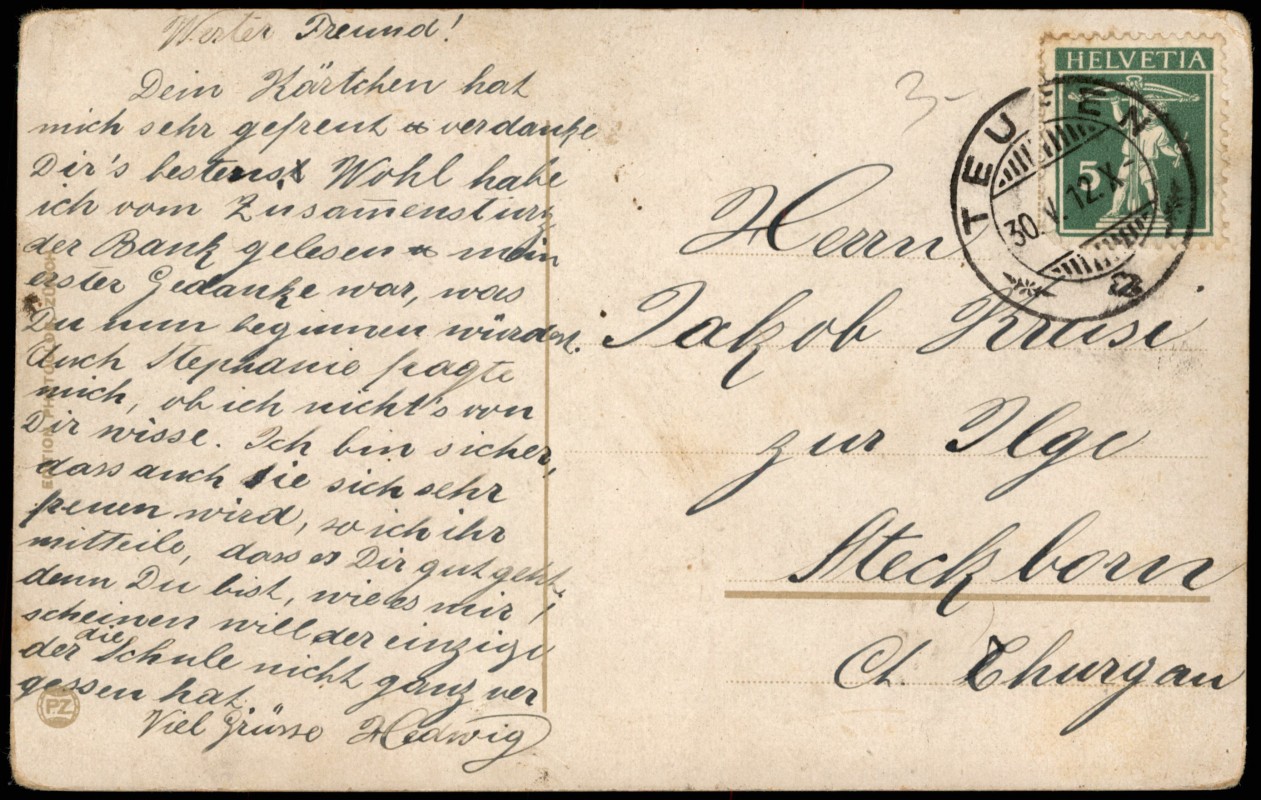 Werter Freund!
Dein Kärtchen hat
mich sehr gefreut & verdanke
Dir's bestens. Wohl habe
ich vom Zusam̅ensturz
der Bank gelesen & mein
erster Gedanke war, was
Du nun beginnen würdest.
Auch Stephanie fragte
mich, ob ich nicht's von
Dir wisse. Ich bin sicher,
dass auch sie sich sehr
freuen wird, so ich ihr
mitteile, dass es Dir gut geht,
denn Du bist, wie es mir
scheinen will der einzige
der die Schule nicht ganz ver
gessen hat.
Viel Grüsse Hedwig
EDITION PHOTOGLOB ZÜRICH
PZ
HELVETIA
5
TEUFEN
30.V.12.X-
Herrn
Jakob Krüsi
zur Ilge
Steckborn
Ct. Thurgau